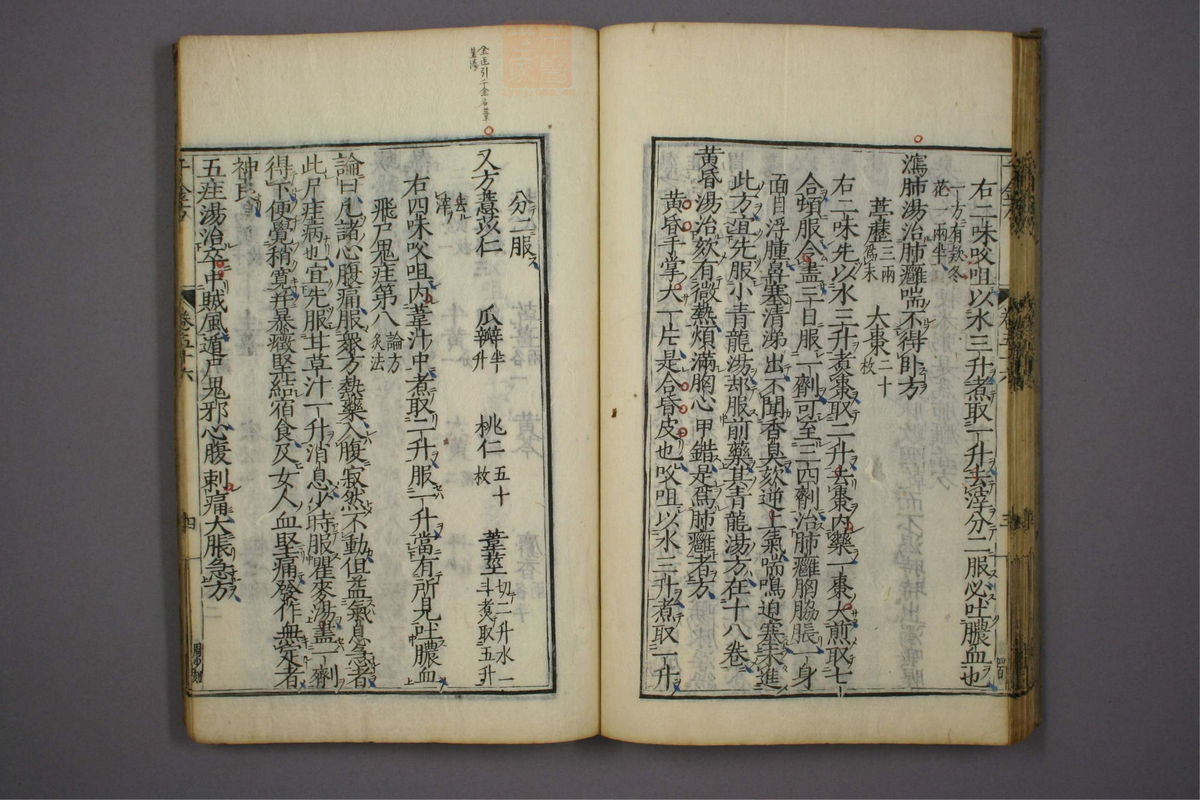 右二味㕮咀以水三升煮取一升去滓分二服必吐膿血也
一方有欵冬
花一兩半
瀉肺湯治肺癰喘不得卧方
葶藶三兩爲末　大棗二十枚
右二味先以水三升煑棗取二升去棗内藥一棗大煎取七
合頓服令盡三日服一劑可至三四劑治肺癰胸脇脹一身
面目浮腫鼻塞清涕出不聞香臭欬逆上氣喘鳴迫塞未進
此方宜先服小青龍湯却服前藥其青龍湯方在十八卷
黄昏湯治欬有微熱煩滿胸心甲錯是爲肺癰者方
黄昏手掌大一片是合昏皮也㕮咀以水三升煮取一升
分二服
又方薏苡仁　瓜瓣半升　桃仁五十枚　葦莖切二升水一斗煑取五升
去滓
右四味㕮咀内葦汁中煮取二升服一升當有所見吐膿血
飛尸鬼疰第八論方灸法
論曰凡諸心腹痛服衆方熱藥入腹寂然不動但益氣息急者
此尸疰病也宜先服甘草汁一升消息少時服瞿麥湯盡一劑
得下便覺稍寛并暴癥堅結宿食及女人血堅痛發作無定者
神良
五疰湯治卒中賊風遁尸鬼邪心腹刺痛大脹急方
金匱引千金名葦
莖湯